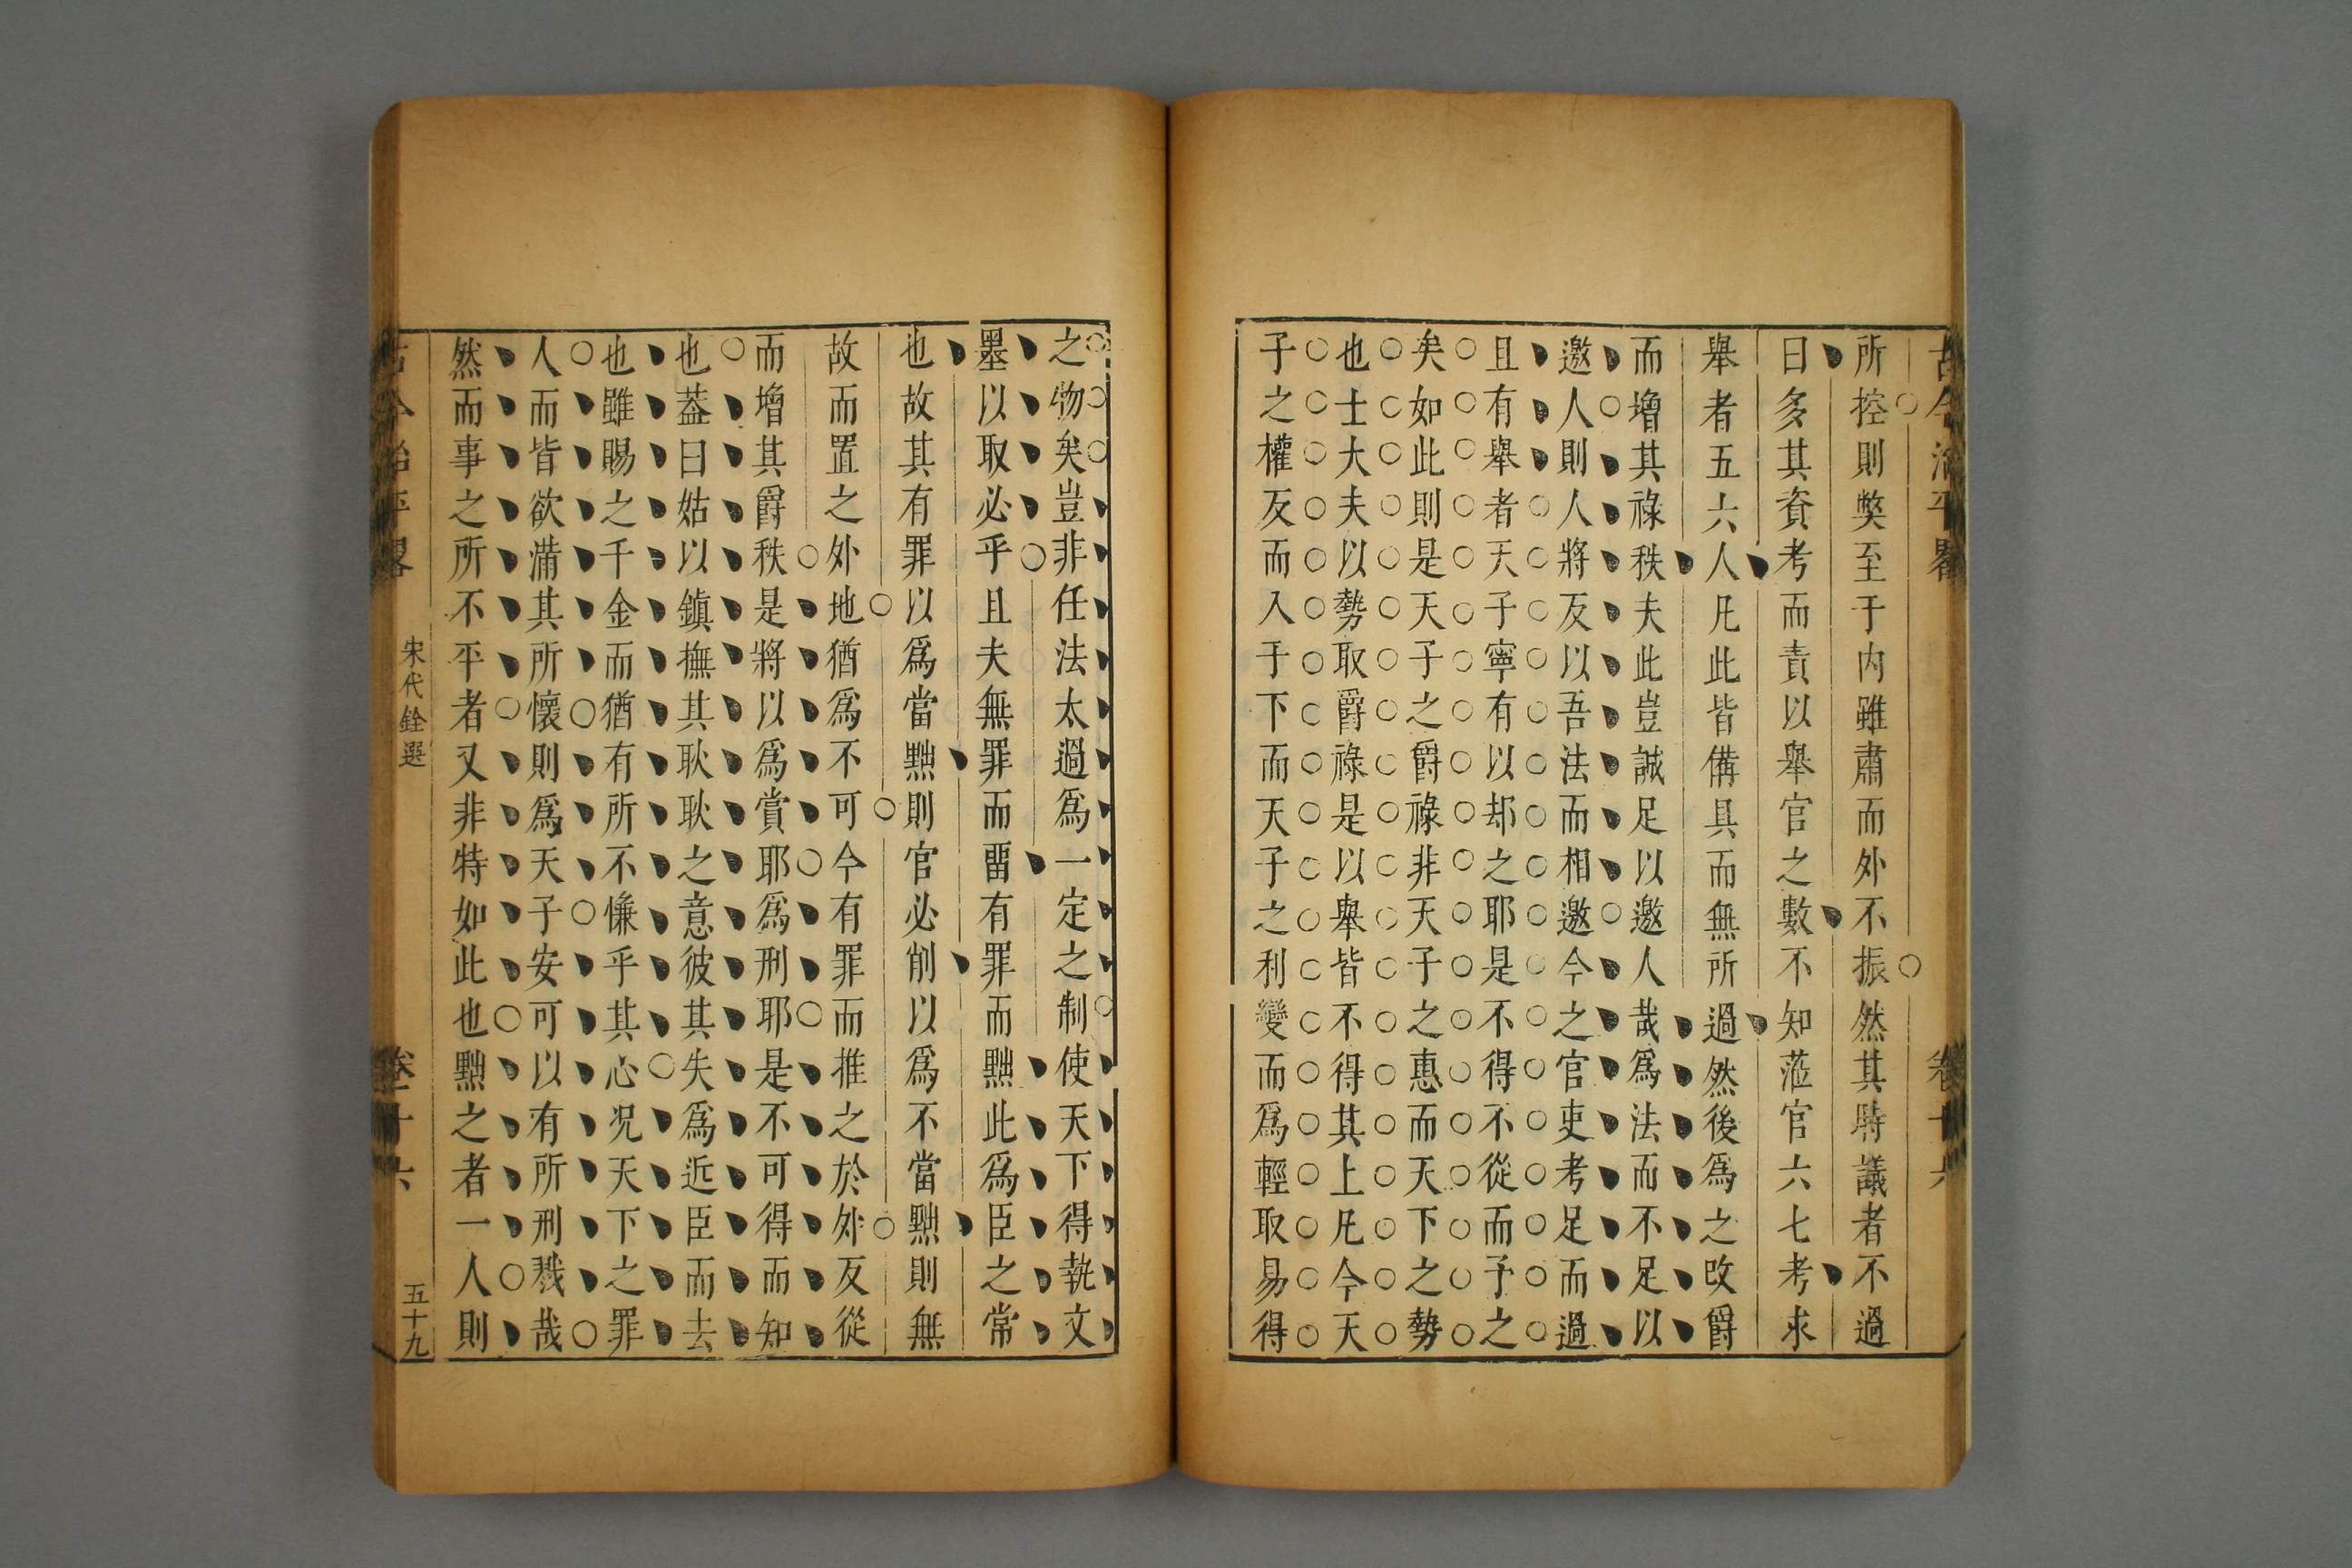 古今治平畧
卷十六
所控則獘至于内雖肅而外不振然其時議者不過
曰多其資考而責以舉官之數不知蒞官六七考求
舉者五六人凡此皆備具而無所過然後爲之改爵
而增其祿秩夫此豈誠足以邀人哉爲法而不足以
邀人則人將反以吾法而相邀今之官吏考足而過
且有舉者天子寧有以却之耶是不得不從而予之
矣如此則是天子之爵祿非天子之惠而天下之勢
也士大夫以勢取爵祿是以舉皆不得其上凡今天
子之權反而入于下而天子之利變而爲輕取易得
之物矣豈非任法太過爲一定之制使天下得執文
墨以取必乎且夫無罪而畱有罪而黜此爲臣之常
也故其有罪以爲當黜則官必削以爲不當黜則無
故而置之外地猶爲不可今有罪而推之於外反從
而增其爵秩是將以爲賞耶爲刑耶是不可得而知
也葢曰姑以鎮撫其耿耿之意彼其失爲近臣而去
也雖賜之千金而猶有所不慊乎其心况天下之罪
人而皆欲滿其所懷則爲天子安可以有所刑戮哉
然而事之所不平者又非特如此也黜之者一人則
古今治平畧
宋代銓選
卷十六
五十九